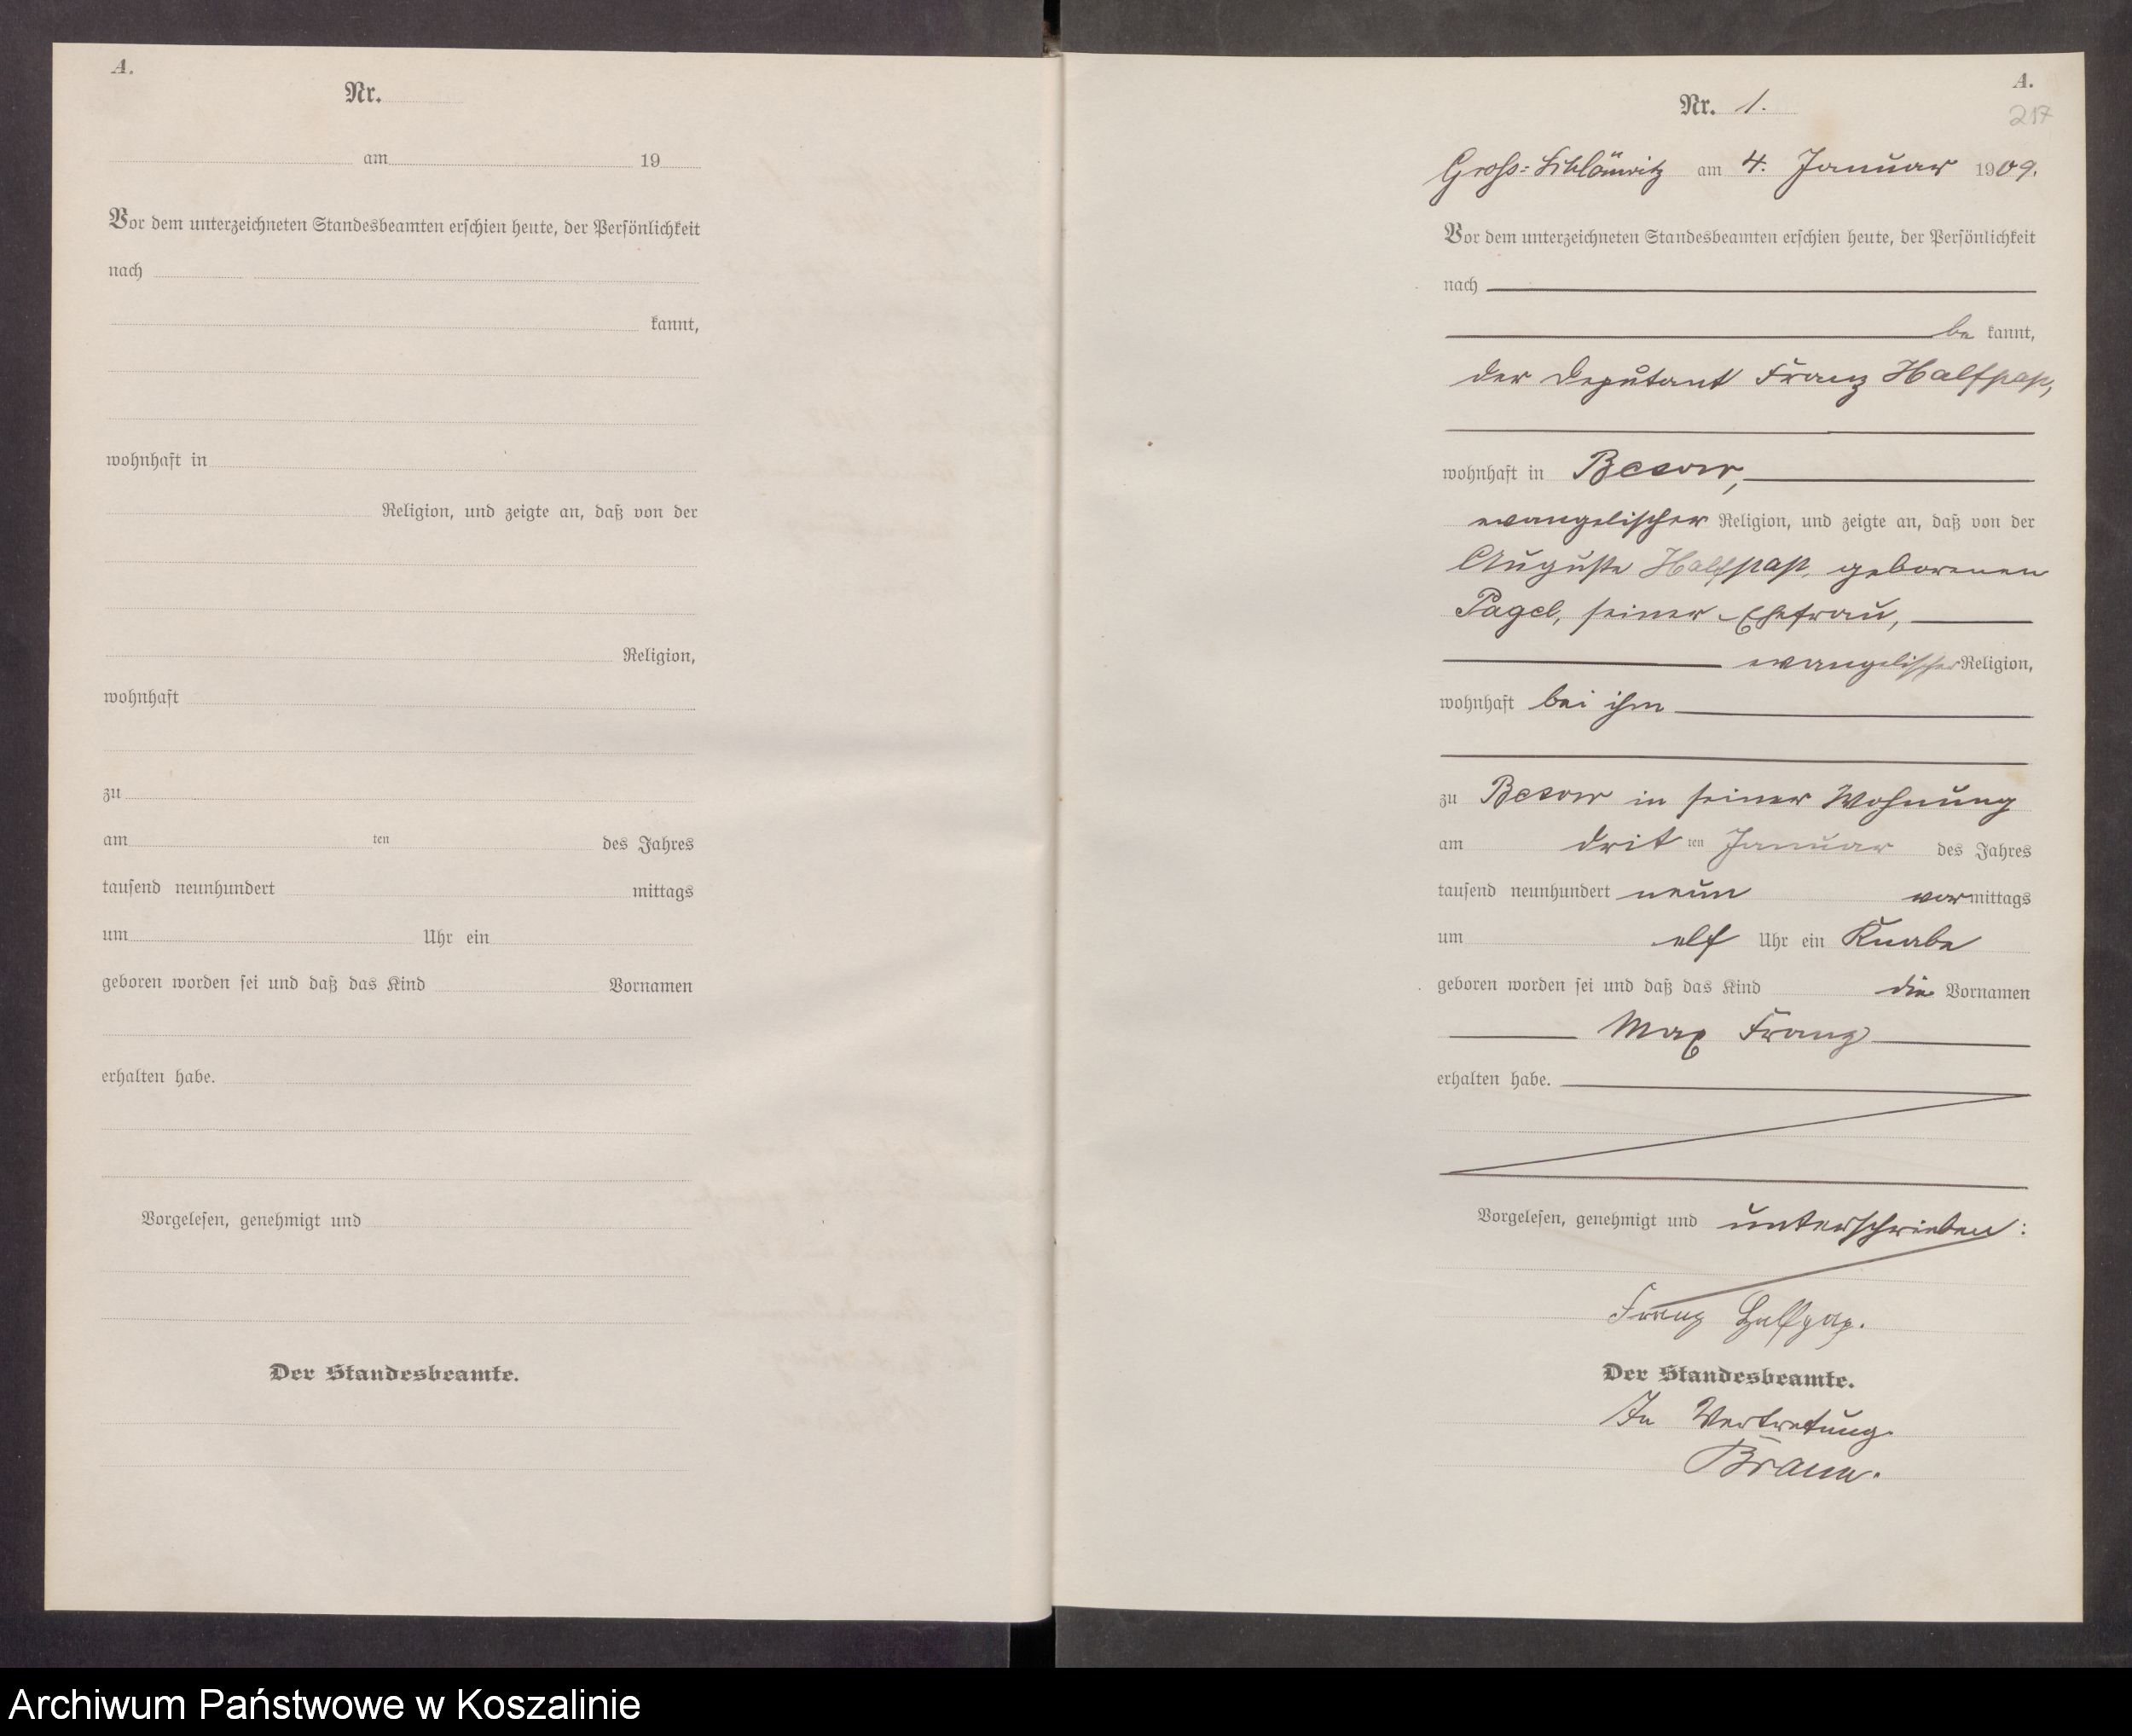 A.
Nr.
am 19
Vor dem unterzeichneten Standesbeamten erschien heute, der Persönlichkeit
nach
kannt,
wohnhaft in
Religion, und zeigte an, daß von der
Religion,
wohnhaft
zu
am ten des Jahres
tausend neunhundert mittags
um Uhr ein
geboren worden sei und daß das Kind Vornamen
erhalten habe.
Vorgelesen, genehmigt und
Der Standesbeamte.
A.
Nr. 1.
217
Groß-Schlönwitz am 4. Januar 1909.
Vor dem unterzeichneten Standesbeamten erschien heute, der Persönlichkeit
nach
be kannt,
der Deputant Franz Halfpap,
wohnhaft in Beсow,
evangelischer Religion, und zeigte an, daß von der
Auguste Halfpap, geborenen
Pagel, seiner Ehefrau,
evangelischer Religion,
wohnhaft bei ihm
zu Besow in seiner Wohnung
am drit ten Januar des Jahres
tausend neunhundert neun vor mittags
um elf Uhr ein Knabe
geboren worden sei und daß das Kind die Vornamen
Max Franz
erhalten habe.
Vorgelesen, genehmigt und unterschrieben:
Franz Halfpap.
Der Standesbeamte.
In Vertretung.
Braun.
Archiwum Państwowe w Koszalinie